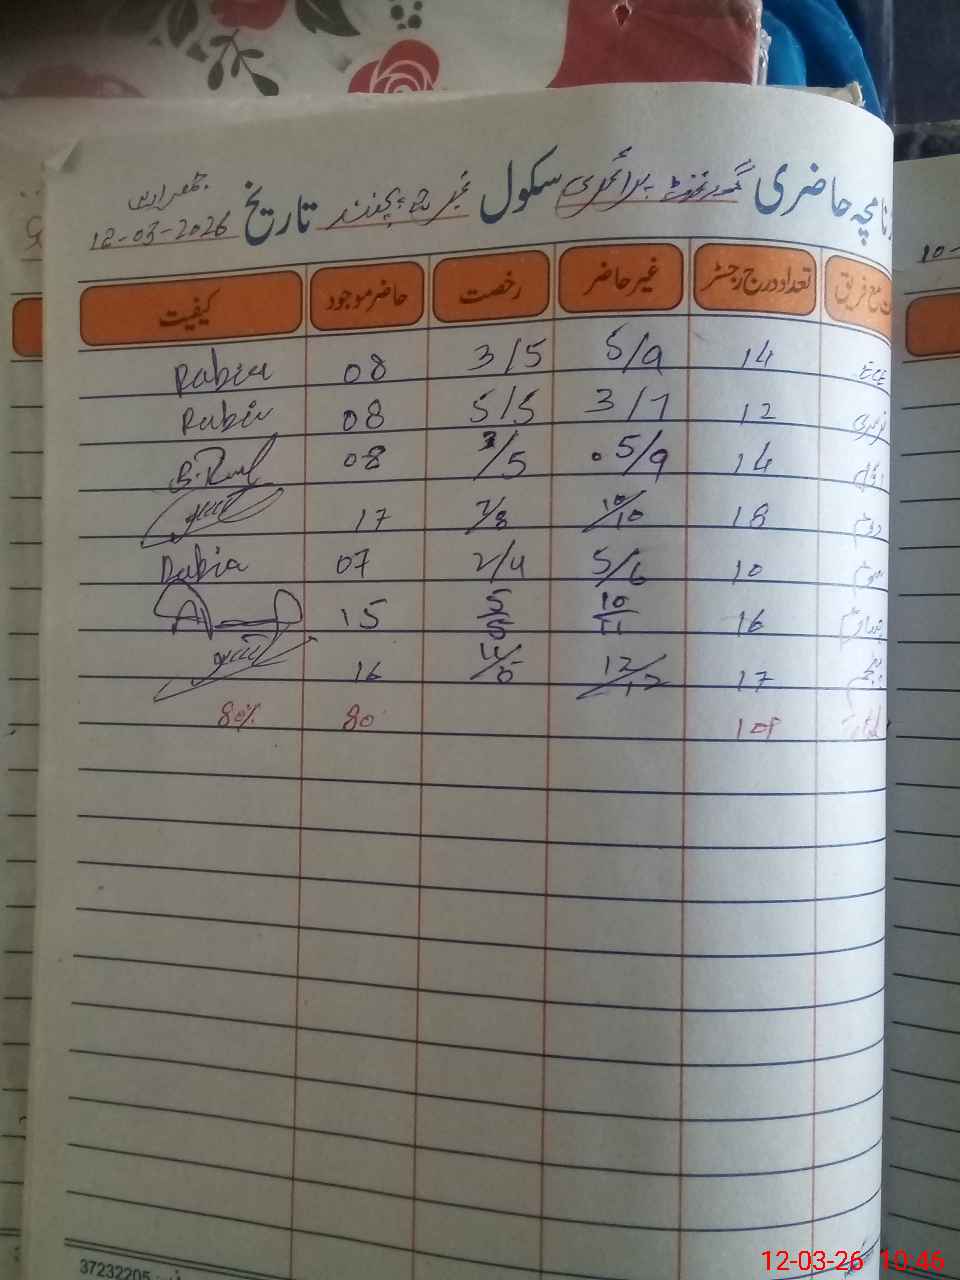 حاضری گورنمنٹ پرائمری سکول تاریخ جمعرات
12-03-2026
10-
مع فریق تعداد درج رجسٹر غیر حاضر رخصت حاضر موجود کیفیت
ECE 14 5/9 3/5 08 Rabia
نرسری 12 3/7 5/5 08 Rabia
اول 14 5/9 3/5 08
دوم 18 10/10 7/8 17
سوم 10 5/6 2/4 07 Rabia
چہارم 16 10/11 5/5 15
پنجم 17 12/12 16
Total 101 80 80%
37232205
12-03-26 10:46